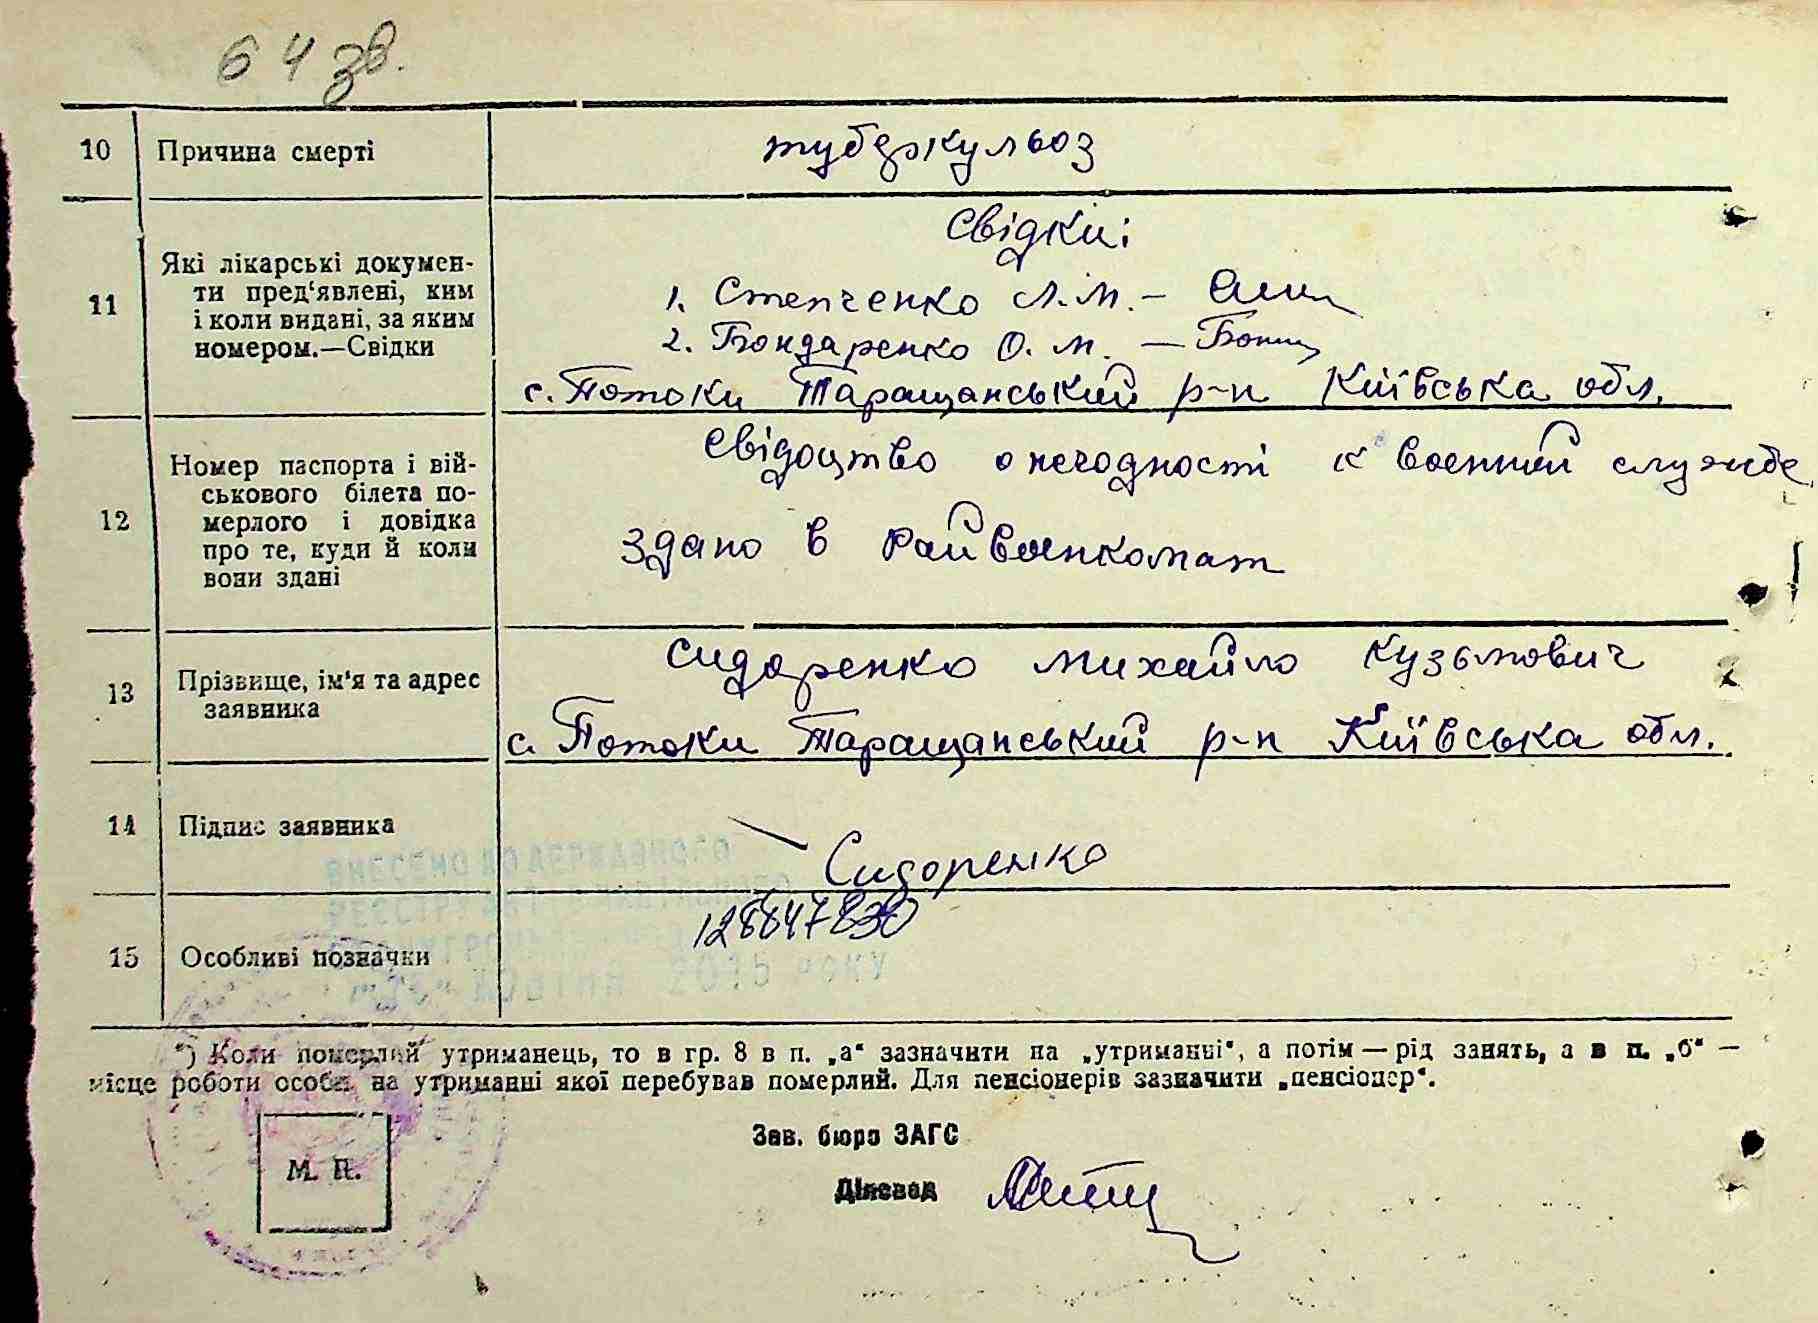 64 зв.
10 Причина смерті туберкульоз
Свідки:
11 Які лікарські докумен-
ти пред‘явлені, ким
і коли видані, за яким
номером.—Свідки
1. Степченко Л.М. –
2. Бондаренко О.М. – Бонд
с. Потоки Таращанський р-н Київська обл.
12 Номер паспорта і вій-
ськового білета по-
мерлого і довідка
про те, куди й коли
вони здані
Свідоцтво о негодності к военній службе
здано в райвоенкомат
13 Прізвище, ім‘я та адрес
заявника
Сидоренко Михайло Кузьмович
с. Потоки Таращанський р-н Київська обл.
14 Підпис заявника
Сидоренко
ВНЕСЕНО ДО ДЕРЖАВНОГО
РЕЄСТРУ АКТІВ ЦИВІЛЬНОГО
15 Особливі позначки
ЖОВТНЯ 2015 РОКУ
*) Коли померлий утриманець, то в гр. 8 в п. „а“ зазначити на „утриманні“, а потім — рід занять, а в п. „б“ —
місце роботи особи на утриманні якої перебував померлий. Для пенсіонерів зазначити „пенсіонер“.
Зав. бюро ЗАГС
М. П.
Діловод